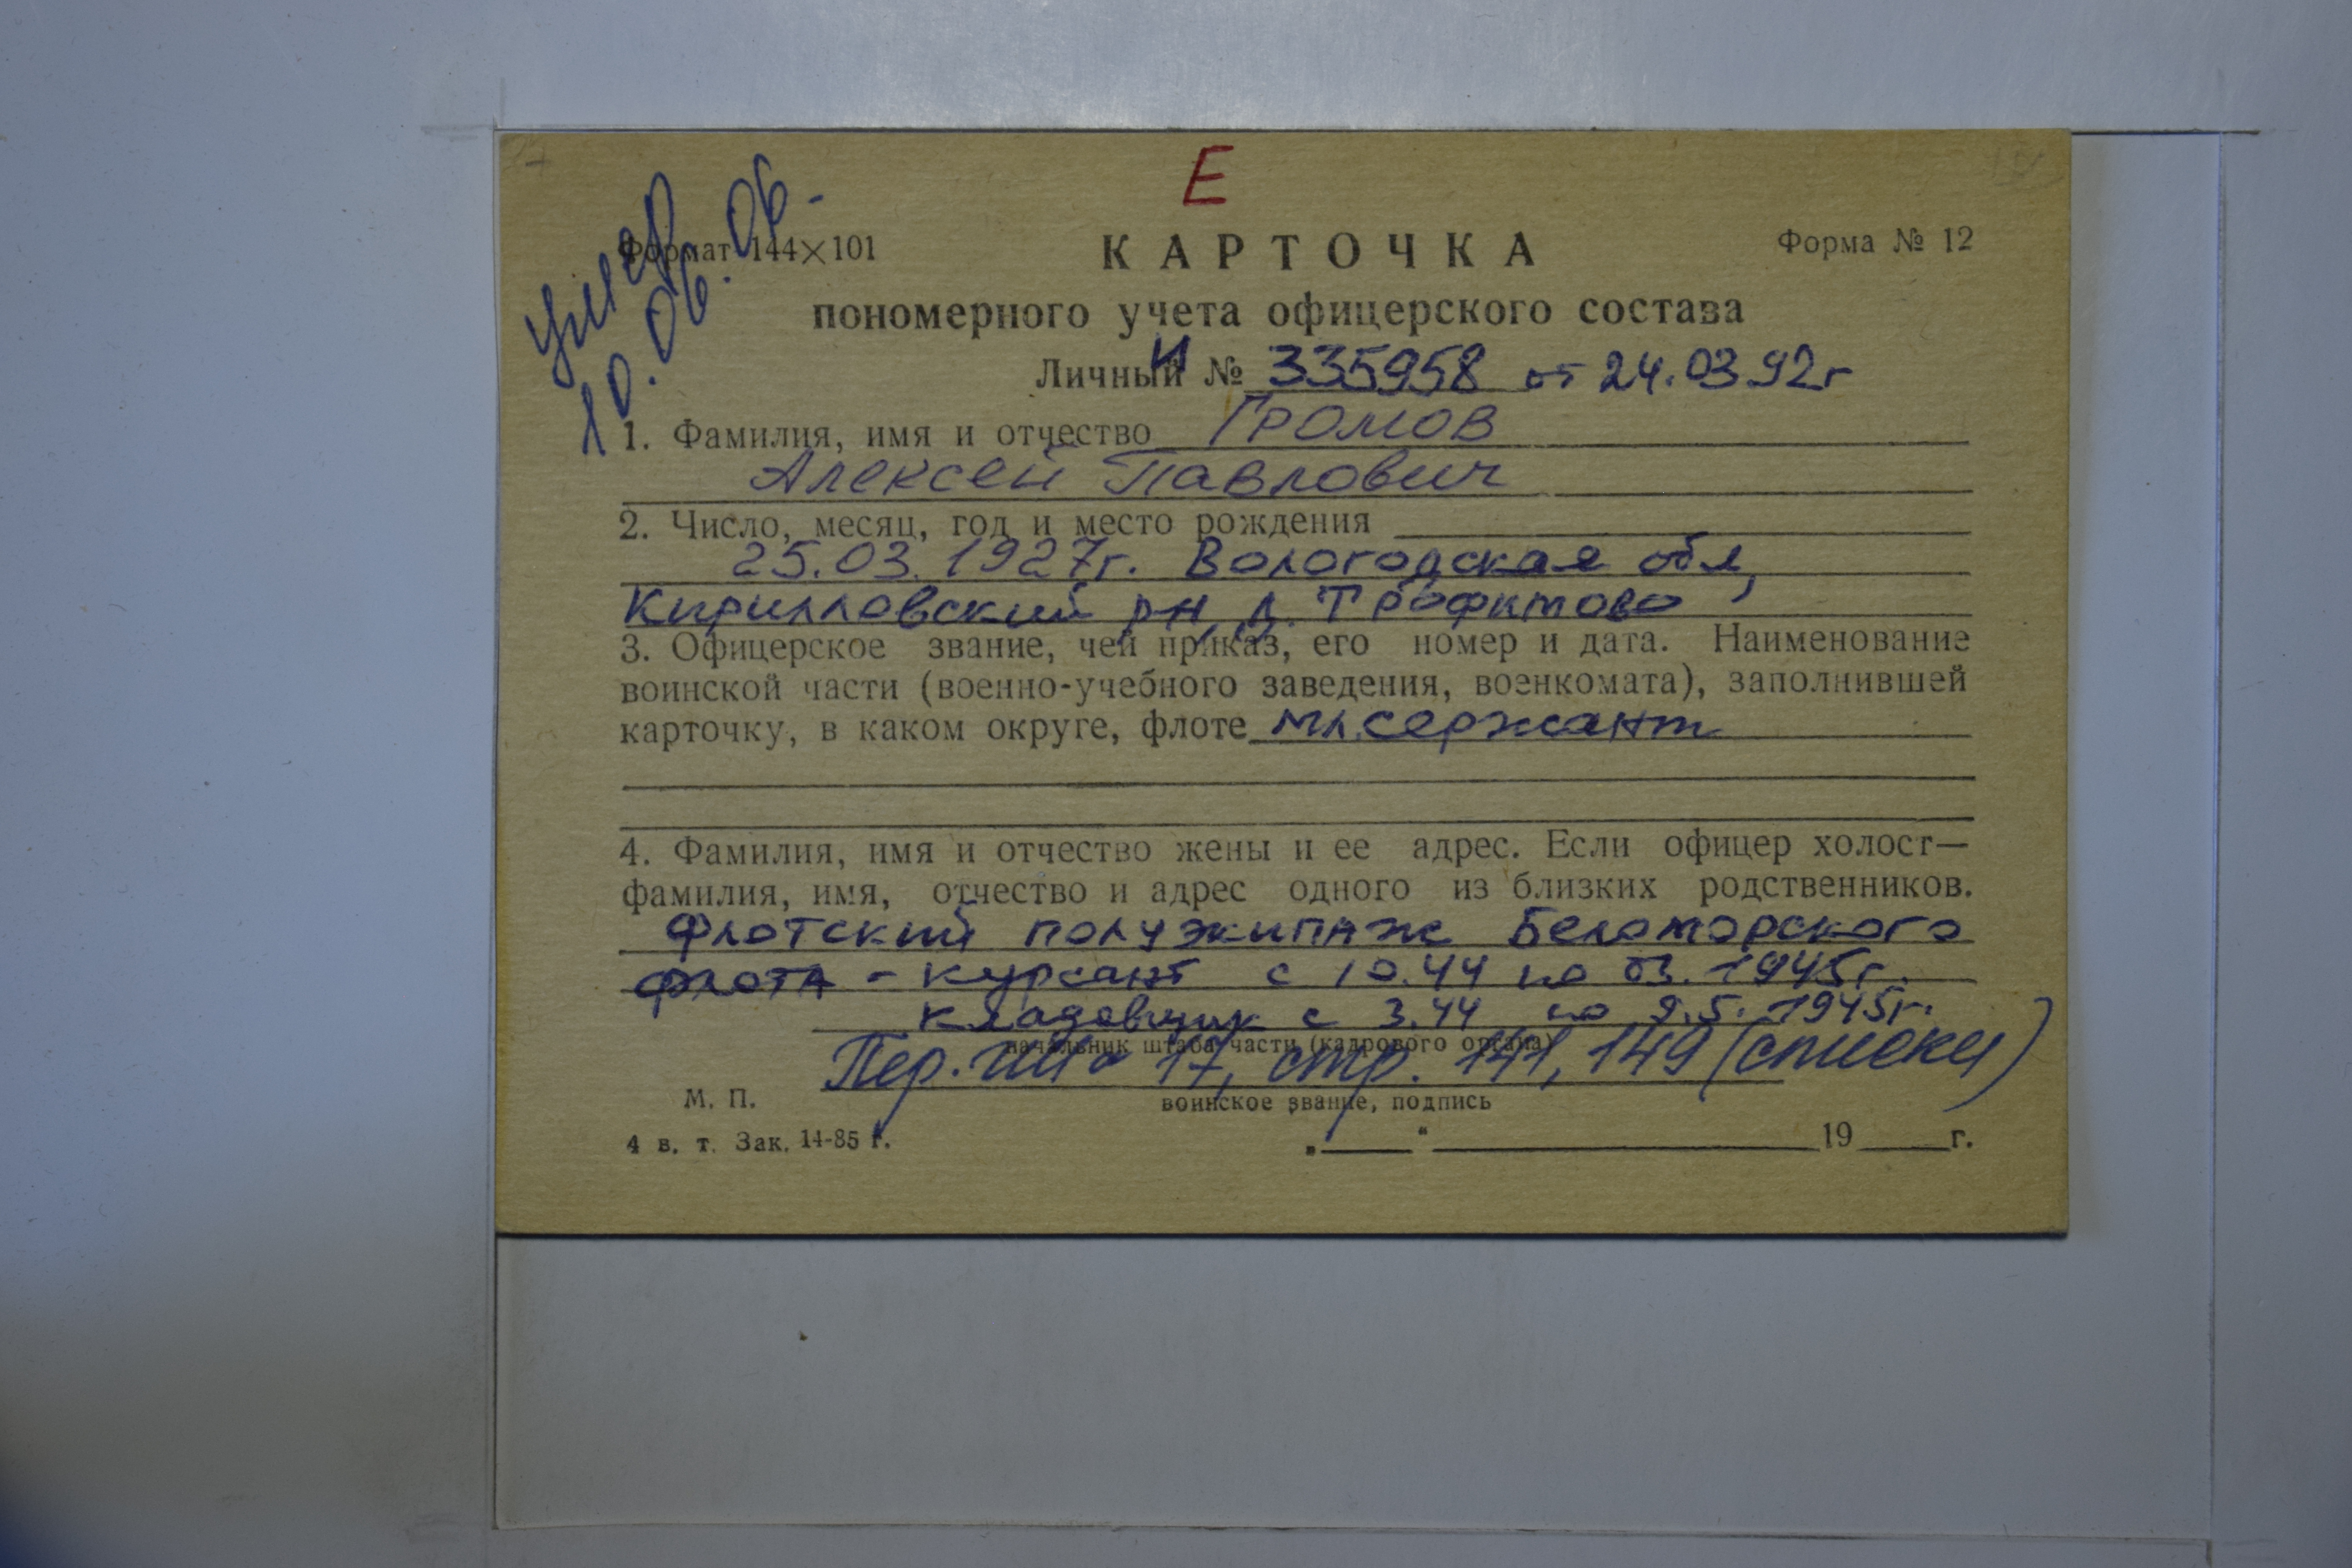 Е
умер
10.06.06.
Формат 144×101
КАРТОЧКА
Форма № 12
пономерного учета офицерского состава
Личный № И 335958 от 24.03.92г
1. Фамилия, имя и отчество Громов
Алексей Павлович
2. Число, месяц, год и место рождения
25.03.1927г. Вологодская обл,
Кирилловский рн, д. Трофимово
3. Офицерское звание, чей приказ, его номер и дата. Наименование
воинской части (военно-учебного заведения, военкомата), заполнившей
карточку, в каком округе, флоте мл.сержант
4. Фамилия, имя и отчество жены и ее адрес. Если офицер холост—
фамилия, имя, отчество и адрес одного из близких родственников.
Флотский полуэкипаж Беломорского
флота - курсант с 10.44 по 03.1945г.
кладовщик с 3.44 по 9.5.1945г.
начальник штаба части (кадрового органа)
Пер. 17, стр. 141, 149 (списки)
М. П.
воинское звание, подпись
4 в. т. Зак. 14-85 г.
„ “ 19 г.